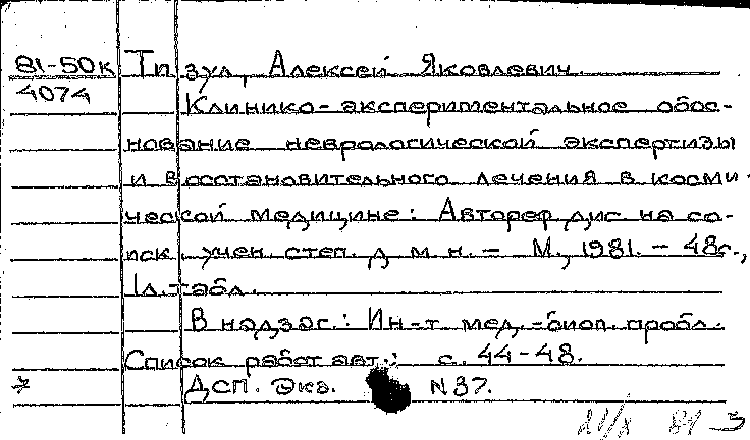 81-50к Тизул, Алексей Яковлевич.
4074
Клинико-экспериментальное обос-
нование неврологической экспертизы
и восстановительного лечения в косми-
ческой медицине: Автореф дис на со-
иск. учен. степ. д. м. н. - М., 1981. - 48с.,
1 л. табл.
В надзаг.: Ин-т мед.-биол. пробл.
Список работ авт.: с. 44-48.
* ДСП. Экз. N 37.